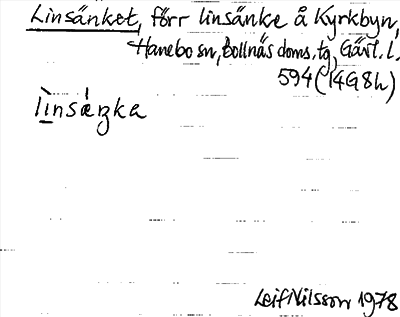 Linsänket, förr linsänke å Kyrkbyn,
Hanebo sn, Bollnäs doms. tg, Gävl. l.
594 (14G8h)
lìnsáŋka
Leif Nilsson 1978